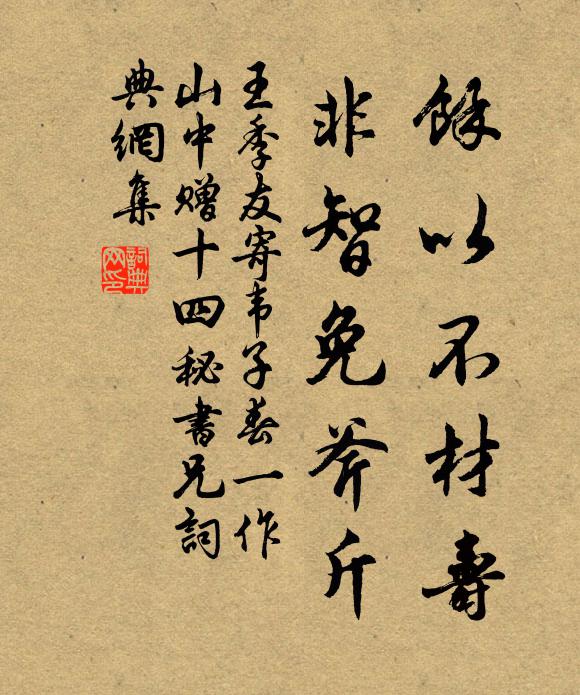 餘以不材壽
非智免斧斤
王季友寄韦子春一作
山中赠十四秘書兄詞
典網集
詞典網印